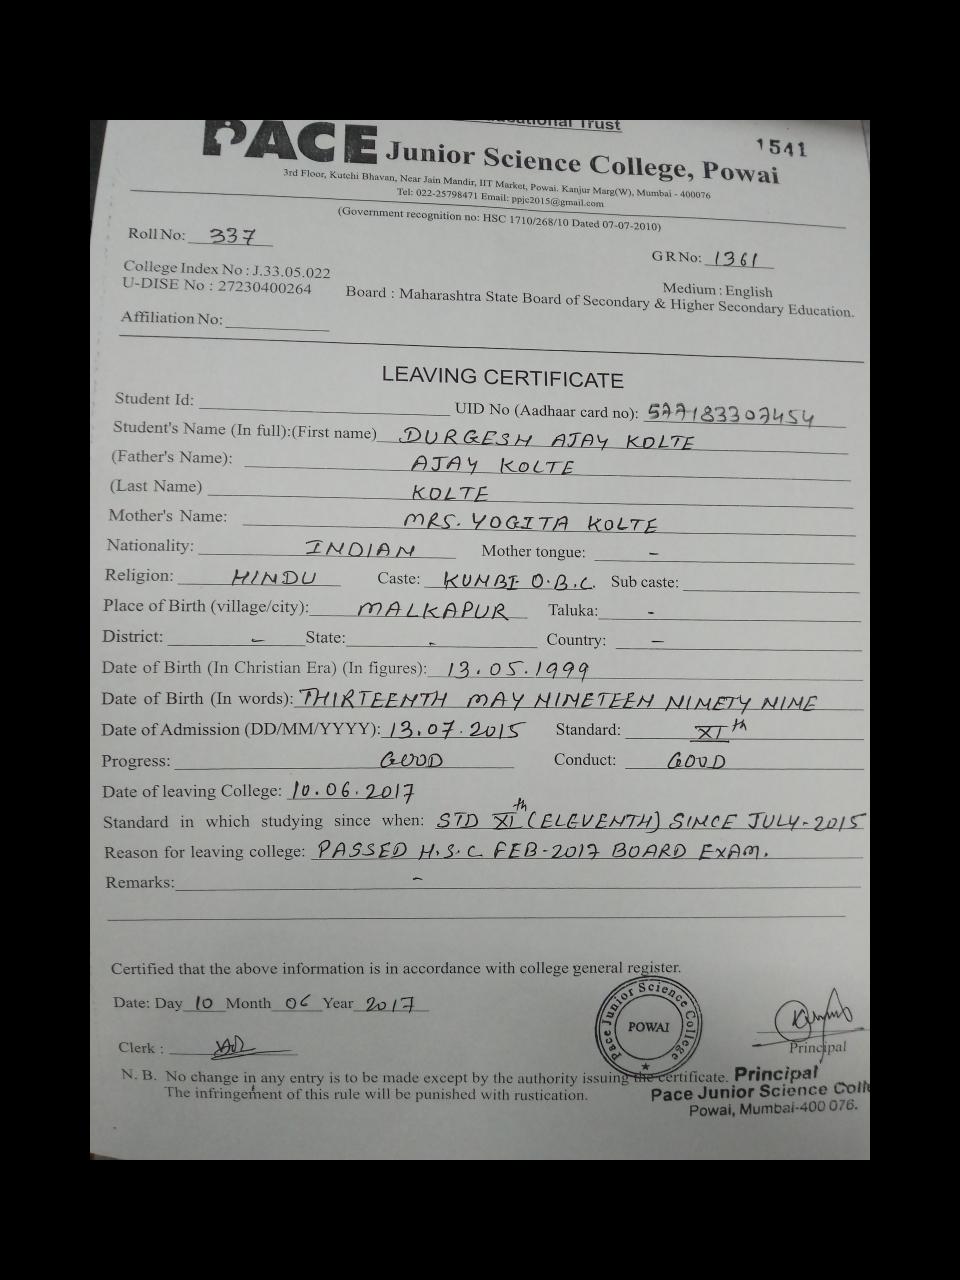 Educational Trust
PACE Junior Science College, Powai
1541
3rd Floor, Kutchi Bhavan, Near Jain Mandir, IIT Market, Powai. Kanjur Marg(W), Mumbai - 400076
Tel: 022-25798471 Email: ppjc2015@gmail.com
(Government recognition no: HSC 1710/268/10 Dated 07-07-2010)
Roll No: 337
GR No: 1361
College Index No : J.33.05.022
Medium : English
U-DISE No : 27230400264
Board : Maharashtra State Board of Secondary & Higher Secondary Education.
Affiliation No:
LEAVING CERTIFICATE
Student Id:
UID No (Aadhaar card no): 577183307454
Student's Name (In full):(First name) DURGESH AJAY KOLTE
(Father's Name): AJAY KOLTE
(Last Name) KOLTE
Mother's Name: MRS. YOGITA KOLTE
Nationality: INDIAN Mother tongue: -
Religion: HINDU Caste: KUNBI O.B.C. Sub caste:
Place of Birth (village/city): MALKAPUR Taluka: -
District: - State: - Country: -
Date of Birth (In Christian Era) (In figures): 13.05.1999
Date of Birth (In words): THIRTEENTH MAY NINETEEN NINETY NINE
Date of Admission (DD/MM/YYYY): 13.07.2015 Standard: XIth
Progress: GOOD Conduct: GOOD
Date of leaving College: 10.06.2017
Standard in which studying since when: STD XIth (ELEVENTH) SINCE JULY-2015
Reason for leaving college: PASSED H.S.C FEB-2017 BOARD EXAM.
Remarks: -
Certified that the above information is in accordance with college general register.
Date: Day 10 Month 06 Year 2017
Pace Junior Science College
POWAI
Clerk :
Principal
N. B. No change in any entry is to be made except by the authority issuing the certificate.
The infringement of this rule will be punished with rustication.
Principal
Pace Junior Science Coll
Powai, Mumbai-400 076.